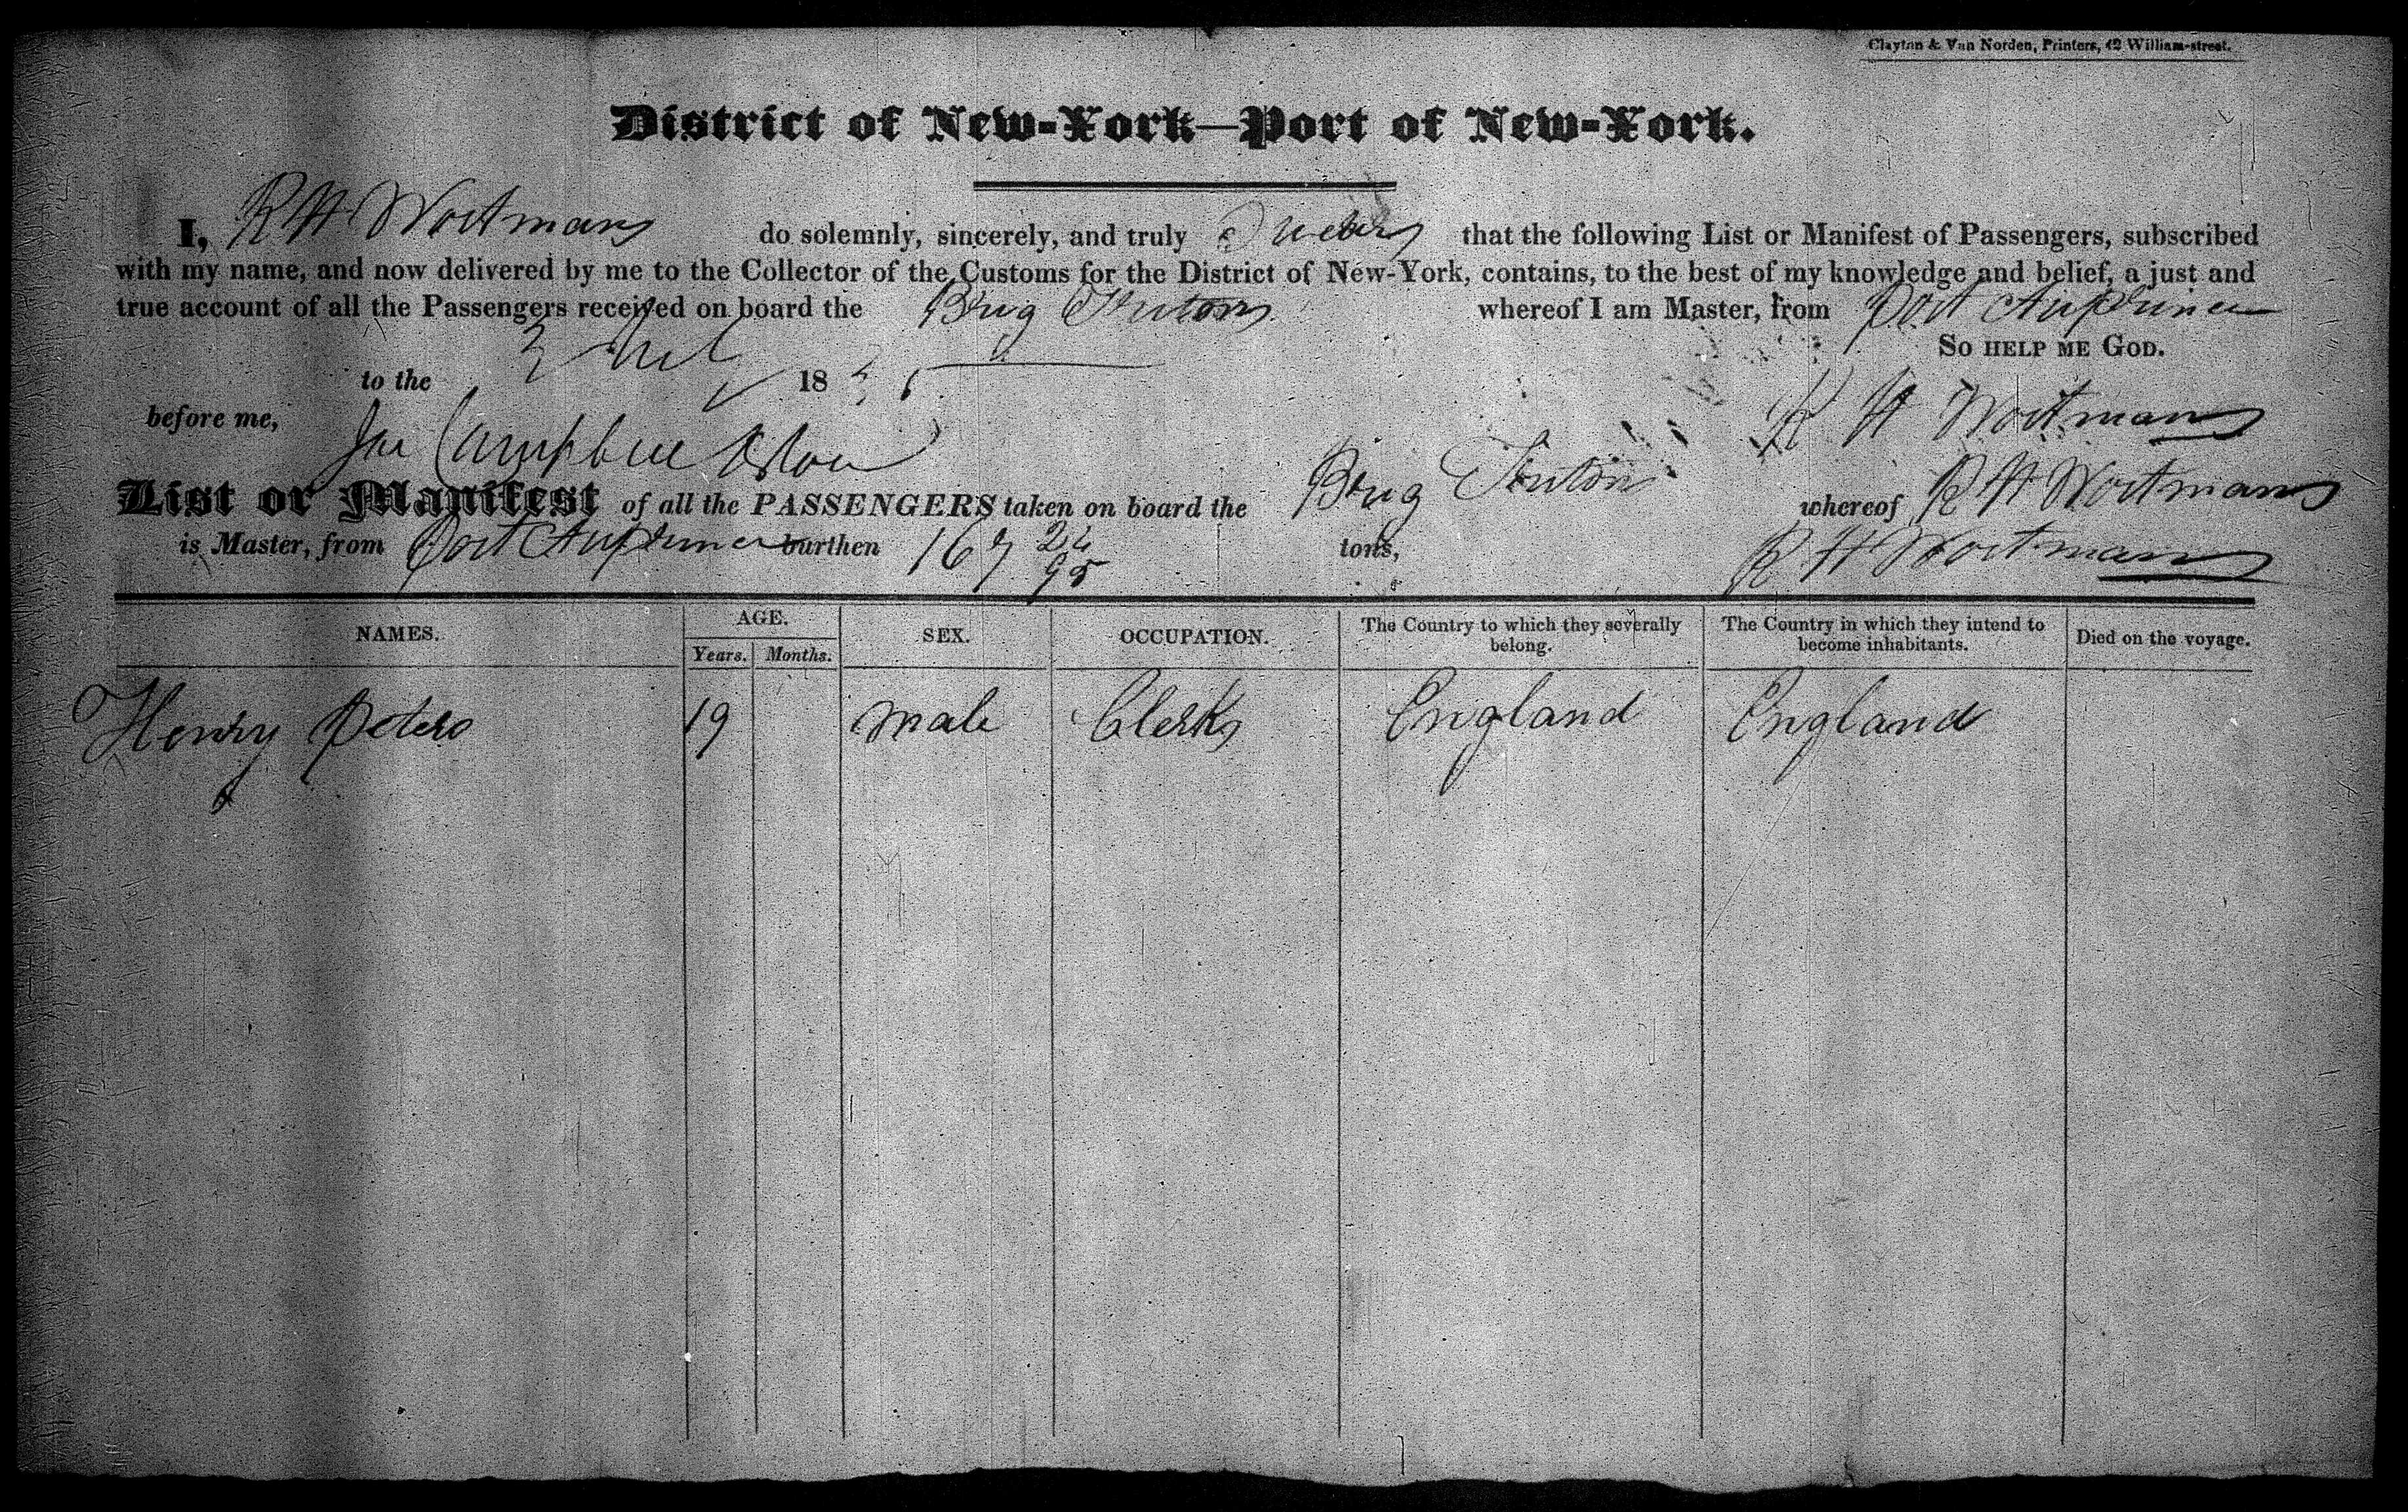 Clayton & Van Norden, Printers, 42 William-street.
District of New-York—Port of New-York.
I, R H Wortmans do solemnly, sincerely, and truly that the following List or Manifest of Passengers, subscribed
with my name, and now delivered by me to the Collector of the Customs for the District of New-York, contains, to the best of my knowledge and belief, a just and
true account of all the Passengers received on board the Brig whereof I am Master, from Port
So help me God.
to the 18
before me, R H Wortmans
List or Manifest of all the PASSENGERS taken on board the Brig whereof R H Wortmans
is Master, from Port burthen 167 tons, R H Wortmans
NAMES. AGE. SEX. OCCUPATION. The Country to which they severally belong. The Country in which they intend to become inhabitants. Died on the voyage.
Years. Months.
Henry Peters 19 male Clerk England England